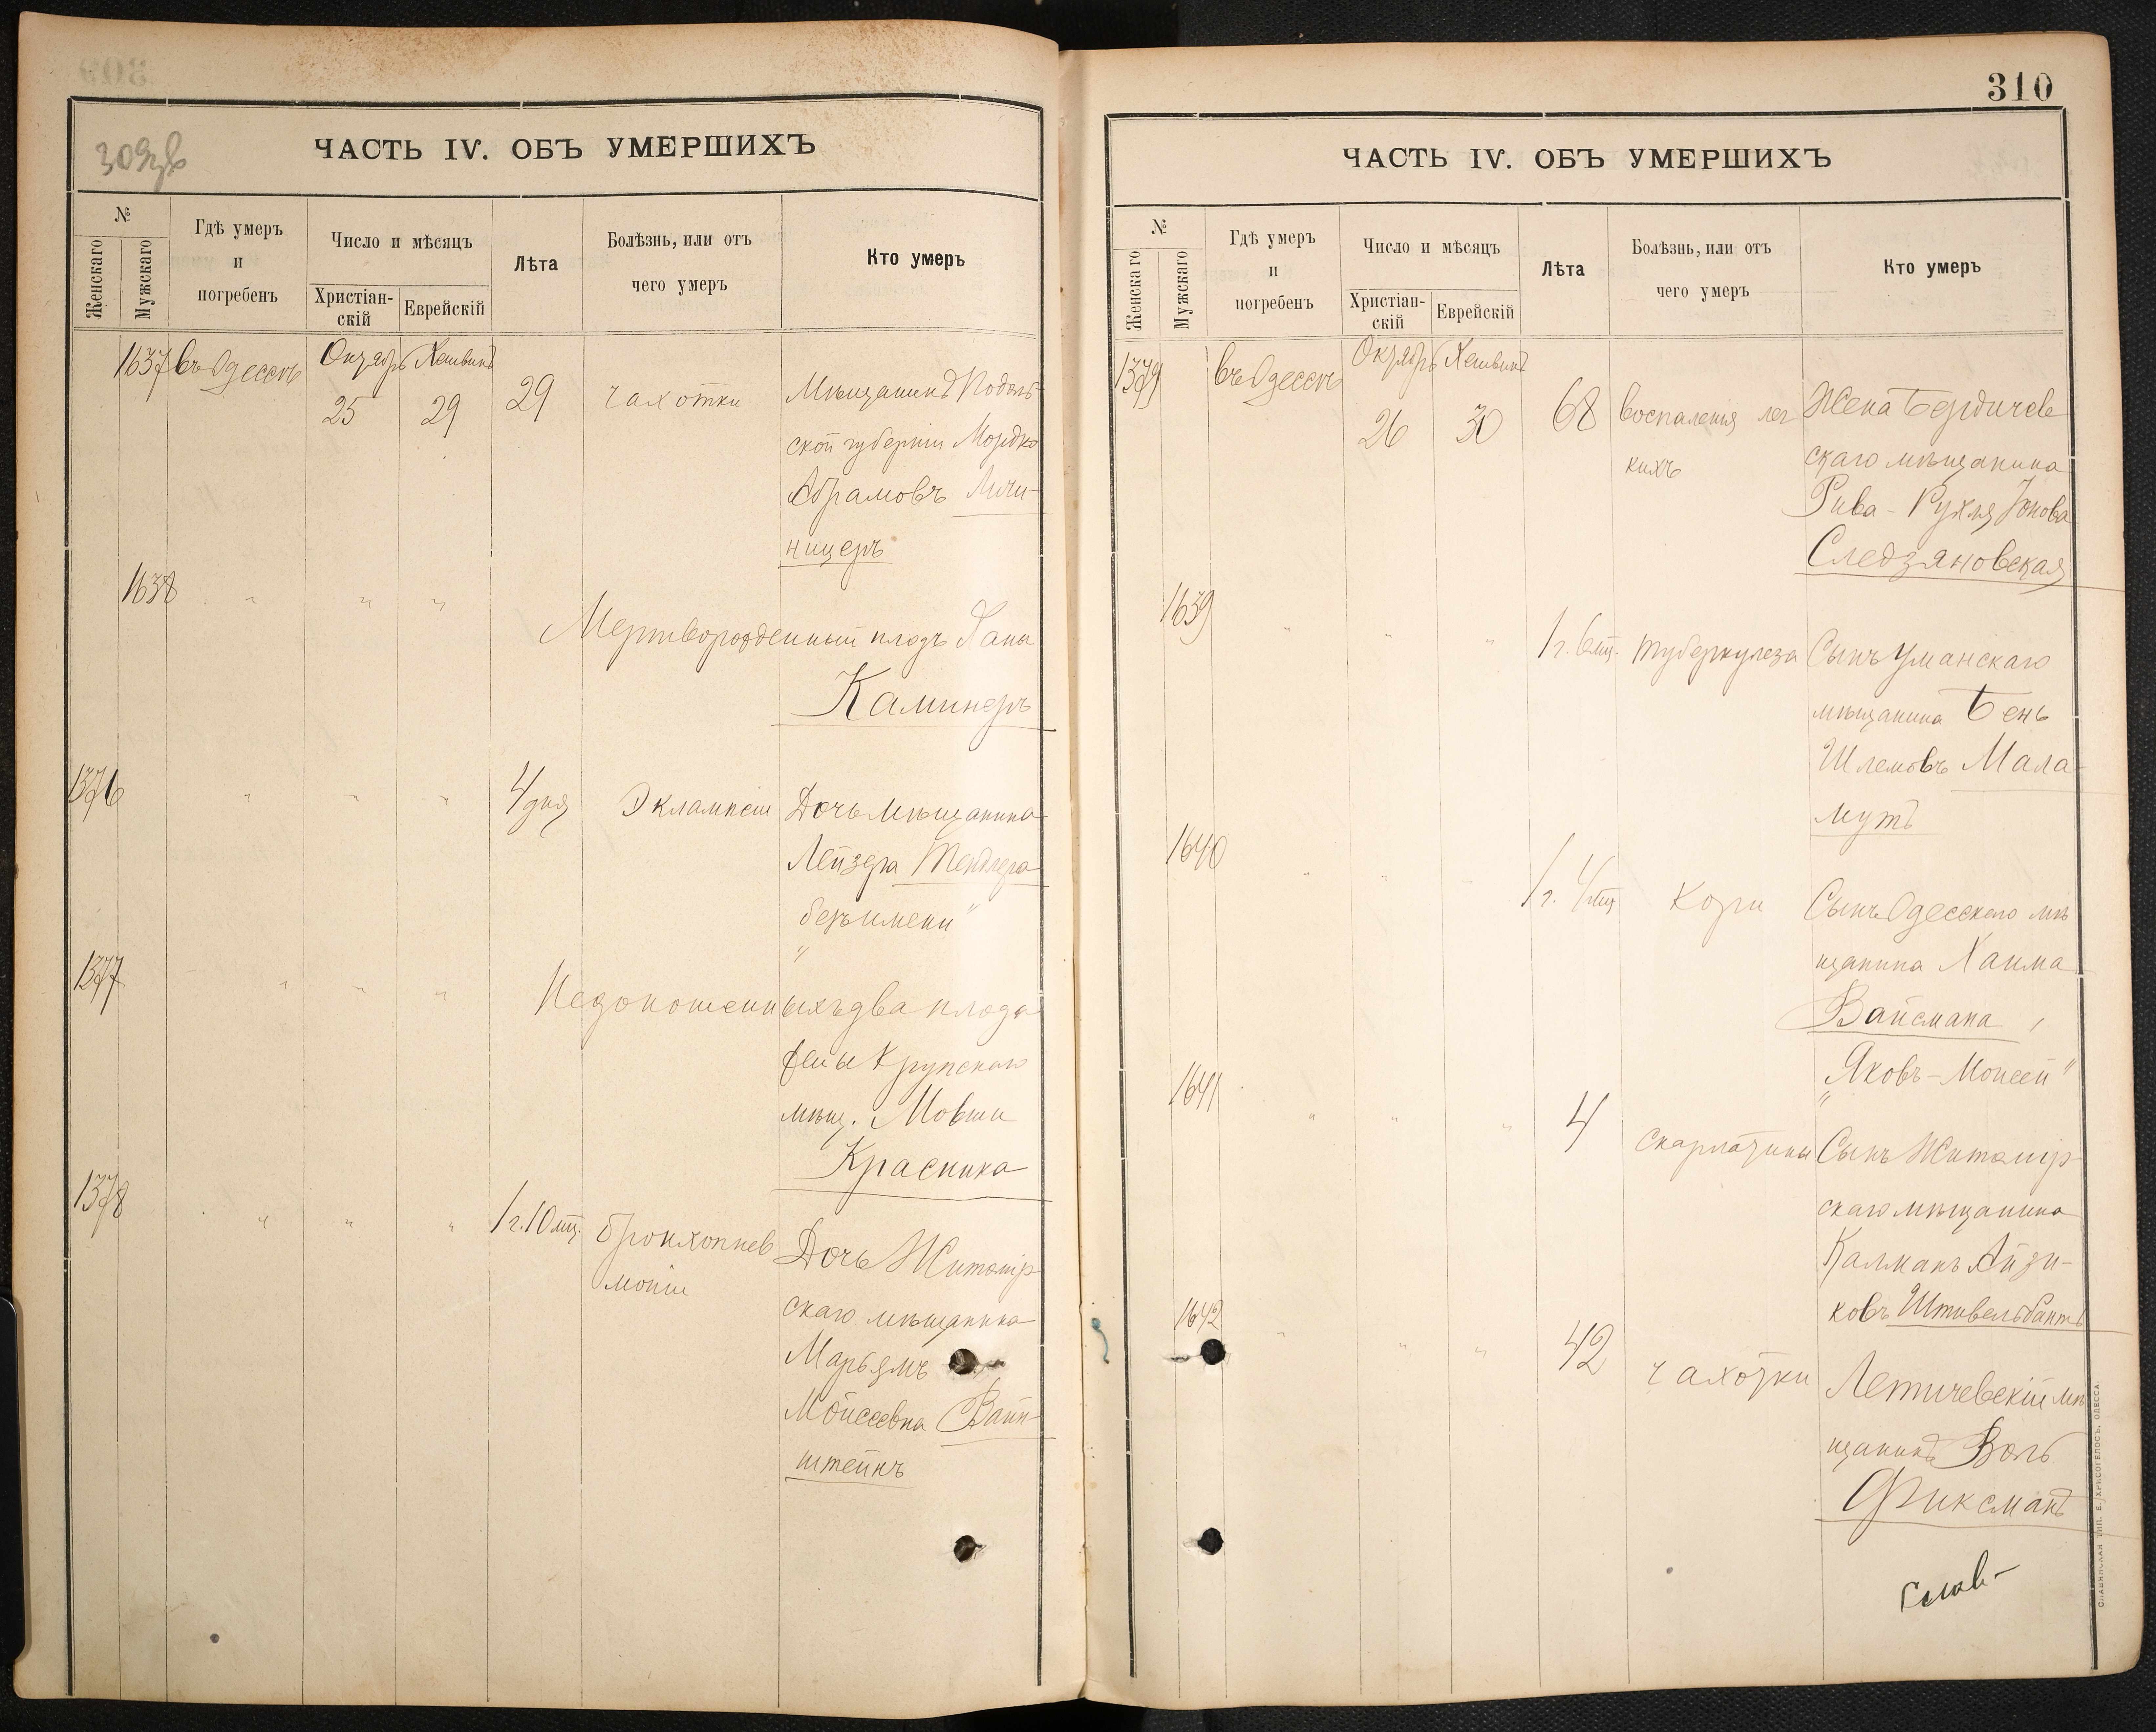 309зв
ЧАСТЬ IV. ОБЪ УМЕРШИХЪ
№
Женскаго
Мужскаго
Гдѣ умеръ
и
погребенъ
Число и мѣсяцъ
Христіан-
скій
Еврейскій
Лѣта
Болѣзнь, или отъ
чего умеръ
Кто умеръ
1637 въ Одессѣ Октябрь Хешвинъ
25 29 29 чахотки Мѣщанинъ Подоль-
ской губерніи Мордко
Абрамовъ Личи-
ницеръ
1638 " " "
Мертворожденный плодъ Ханы
Каминеръ
1376 " " " 4 дня Эклампсіи Дочь мѣщанина
Лейзера Тендлера
безъ имени"
"
1377 " " "
Недоношенныхъ два плода
жены Крупскаго
мѣщ. Мовши
Красника
1378 " " " 1 г. 10 мц. бронхопнев
моніи
Дочь Житомір-
скаго мѣщанина
Марьямъ
Мойсеевна Вайн-
штейнъ
310
ЧАСТЬ IV. ОБЪ УМЕРШИХЪ
№
Женскаго
Мужскаго
Гдѣ умеръ
и
погребенъ
Число и мѣсяцъ
Христіан-
скій
Еврейскій
Лѣта
Болѣзнь, или отъ
чего умеръ
Кто умеръ
1379 въ Одессѣ Октябрь Хешвинъ
26 30 68 воспаленія лег
кихъ
Жена Бердичев
скаго мѣщанина
Рива-Рухля Іонова
Следзяновская
1639 " " " 1 г. 6 мц. туберкулеза Сынъ Уманскаго
мѣщанина Бень
Шлемовъ Мала-
мутъ
1640 " " " 1 г. 4 мц кори Сынъ Одесскаго мѣ
щанина Хаима
Вайсмана,
"Яковъ-Моисей"
1641 " " " 4 скарлатины Сынъ Житомір-
скаго мѣщанина
Калманъ Айзи-
ковъ Штивельбантъ
1642 " " " 42 чахотки Летичевскій мѣ
щанинъ Воль
Фиксманъ
СЛАВЯНСКАЯ ТИП. Е. ХРИСОГЕЛОСЪ, ОДЕССА.